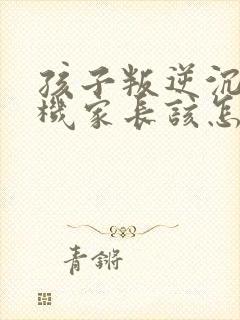 孩子叛逆沉
機家長該怎
青锵